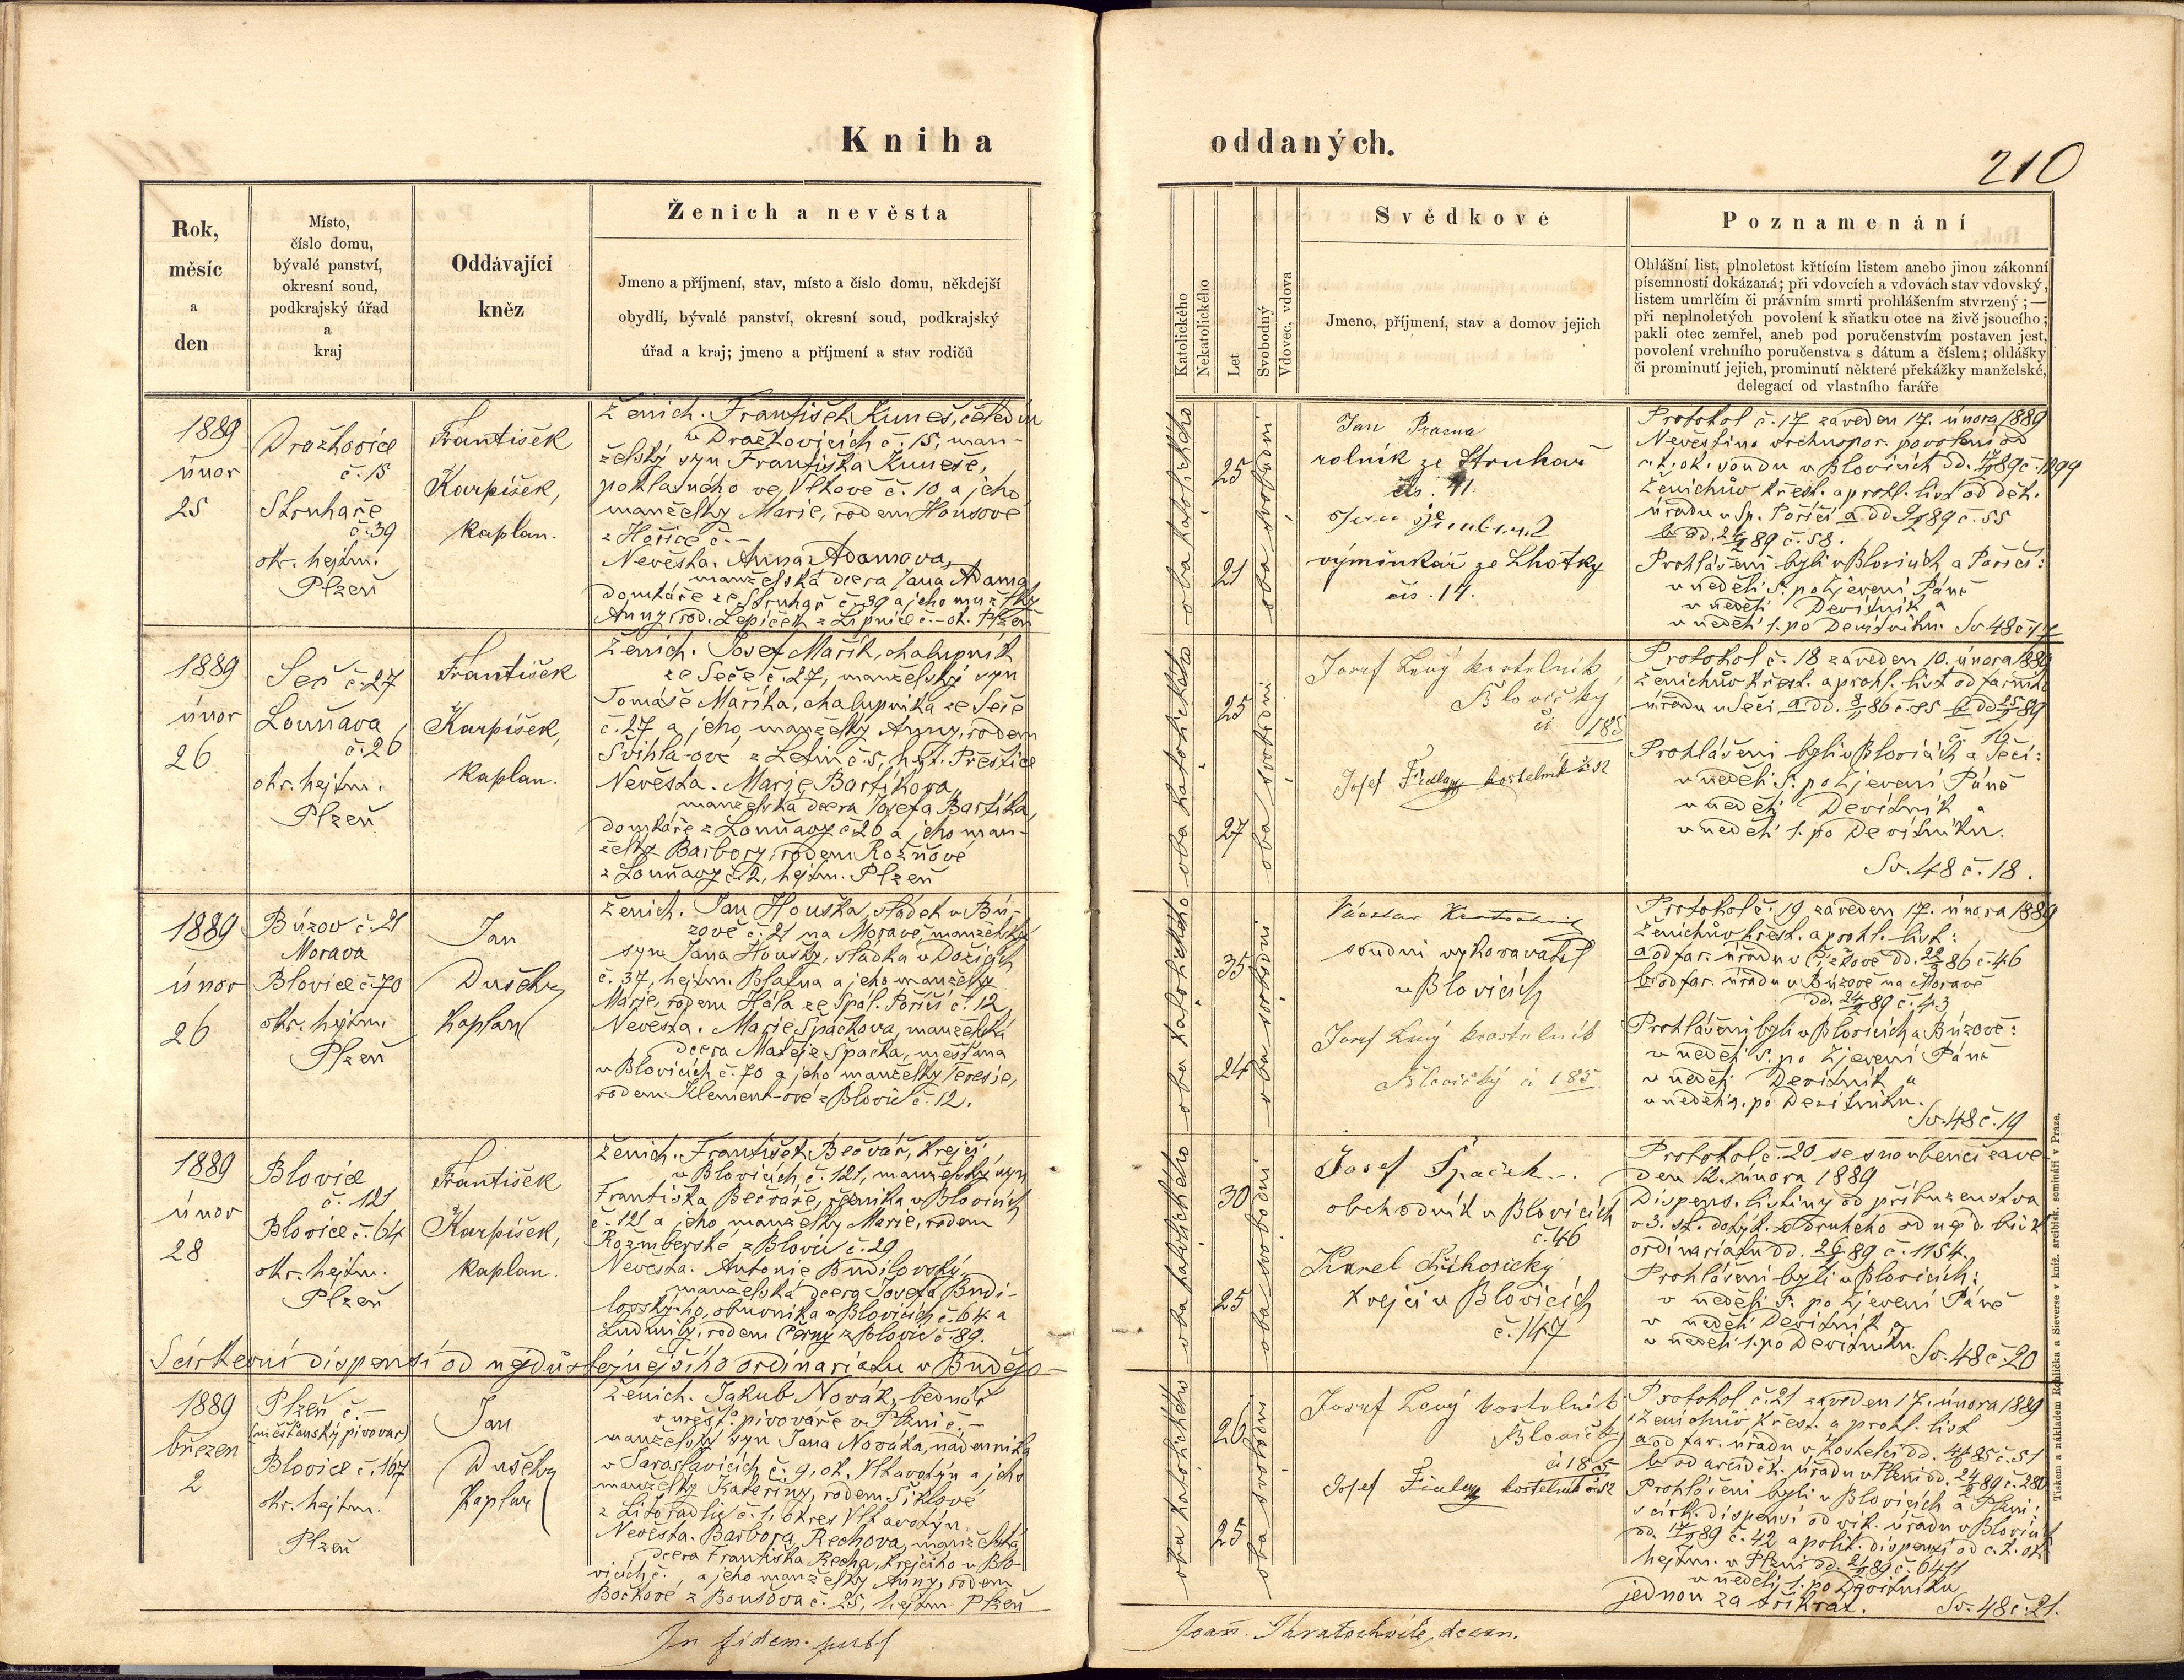 Kniha
oddaných.
210
Rok,
měsíc
a
den
Místo,
číslo domu,
bývalé panství,
okresní soud,
podkrajský úřad
a
kraj
Oddávající
kněz
Ženich a nevěsta
Jmeno a příjmení, stav, místo a číslo domu, někdejší
obydlí, bývalé panství, okresní soud, podkrajský
úřad a kraj; jmeno a příjmení a stav rodičů
Katolického
Nekatolického
Let
Svobodný
Vdovec, vdova
Svědkové
Jmeno, příjmení, stav a domov jejich
Poznamenání
Ohlášní list, plnoletost křtícím listem anebo jinou zákonní
písemností dokázaná; při vdovcích a vdovách stav vdovský,
listem umrlčím či právním smrti prohlášením stvrzený; —
při neplnoletých povolení k sňatku otce na živě jsoucího;
pakli otec zemřel, aneb pod poručenstvím postaven jest,
povolení vrchního poručenstva s dátum a číslem; ohlášky
či prominutí jejich, prominutí některé překážky manželské,
delegací od vlastního faráře
1889
únor
25
Dražkovice
č. 15
Struhaře
č. 39
okr. hejtm.
Plzeň
František
Karpíšek,
kaplan.
Ženich. František Kuneš, čeledín
v Dražkovicích č. 15, man-
želský syn Františka Kuneše,
poklasného ve Vlkově č. 10 a jeho
manželky Marie, rodem Housové
z Hořic č. -
Nevěsta. Anna Adamova,
manželská dcera Jana Adama
domkáře ze Struhař č. 39 a jeho manželky
Anny rod. Lepíček z Lipnice č. - ok. Plzeň
oba katolického
25
21
oba svobodni
Jan
rolník ze Struhař
čís. 41.
výminkář ze Lhotky
čís. 14.
Protokol č. 17 zaveden 17. února 1889
Nevěstino vrchnopor. povolení od
c. k. ok. soudu v Blovicích dd. 17/2 89 č. 1299
Ženichův křest. a prohl. list od děk.
úřadu v Sp. Poříčí a dd. 9/2 89 č. 55
b dd. 24/2 89 č. 58.
Prohlášeni byli v Blovicích a Poříčí:
v neděli 5. po Zjevení Páně
v neděli Devítník a
v neděli 1. po Devítníku. Sv. 48 č. 17
1889
únor
26
Seč č. 27
Louňava
č. 26
okr. hejtm.
Plzeň
František
Karpíšek,
kaplan.
Ženich. Josef Mařík, chalupník
ze Seče č. 27, manželský syn
Tomáše Maříka, chalupníka ze Seče
č. 27 a jeho manželky Anny, rodem
Švihla-ové z Letin č. 5, hejt. Přeštice
Nevěsta. Marie Bartíkova,
manželská dcera Josefa Bartíka,
domkáře z Louňavy č. 26 a jeho man-
želky Barbory, rodem Rožnové
z Louňavy č. 2, hejtm. Plzeň
oba katolického
25
27
oba svobodni
Josef Lavý kostelník
Blovičký
č. 185
Josef Fiala kostelník č. 52
Protokol č. 18 zaveden 10. února 1889
Ženichův křest. a prohl. list od farního
úřadu v Seči a dd. 8/11 86 č. 85 b dd. 25/2 89
č. 19
Prohlášeni byli v Blovicích a Seči:
v neděli 5. po Zjevení Páně
v neděli Devítník a
v neděli 1. po Devítníku.
Sv. 48 č. 18.
1889
únor
26
Búzov č. 21
Morava
Blovice č. 70
okr. hejtm.
Plzeň
Jan
Dušek
kaplan
Ženich. Jan Houška, sládek v Bú-
zově č. 21 na Moravě, manželský
syn Jana Houšky, sládka v Dožicích
č. 37, hejtm. Blatna a jeho manželky
Marie, rodem Hála ze Spál. Poříčí č. 12
Nevěsta. Marie Špačkova, manželská
dcera Matěje Špačka, měšťana
v Blovicích č. 70 a jeho manželky Terezie,
rodem Klement-ové z Blovic č. 12.
oba katolického
35
24
oba svobodni
Václav
soudní vykonavatel
v Blovicích
Josef Lavý kostelník
Blovičký č. 185.
Protokol č. 19 zaveden 17. února 1889
Ženichův křest. a prohl. list:
a od far. úřadu v Čížkově dd. 22/2 86 č. 46
b od far. úřadu v Búzově na Moravě
dd. 24/2 89 č. 43
Prohlášeni byli v Blovicích a Búzově:
v neděli 5. po Zjevení Páně
v neděli Devítník a
v neděli 1. po Devítníku.
Sv. 48 č. 19
1889
únor
28
Blovice
č. 121
Blovice č. 64
okr. hejtm.
Plzeň
František
Karpíšek,
kaplan.
Ženich. František Bečvář, krejčí
v Blovicích, č. 121, manželský syn
Františka Bečváře, řezníka v Blovicích
č. 121 a jeho manželky Marie, rodem
Rožmberské z Blovic č. 29
Nevěsta. Antonie Budilovský,
manželská dcera Josefa Budi-
lovského, obuvníka v Blovicích č. 64 a
Ludmily, rodem Černý z Blovic č. 89.
S církevní dispensí od nejdůstojnějšího ordinariatu v Budějo-
oba katolického
30
25
oba svobodni
Josef Špaček
obchodník v Blovicích
č. 46
Karel
krejčí v Blovicích
č. 147
Protokol č. 20 se snoubenci zave-
den 12. února 1889
Dispens. listiny od příbuzenstva
v 3. st. dotýk. se druhého od nejd. bisk.
ordinariatu dd. 26/2 89 č. 1154.
Prohlášeni byli v Blovicích:
v neděli 5. po Zjevení Páně
v neděli Devítník a
v neděli 1. po Devítníku. Sv. 48 č. 20
1889
březen
2
Plzeň č. —
(měšťanský pivovar)
Blovice č. 167
okr. hejtm.
Plzeň
Jan
Dušek
kaplan
Ženich. Jakub Novák, bednář
v měšť. pivováře v Plzni č. —
manželský syn Jana Nováka, nádenníka
v Jaroslavicích č. 9, ok. Vltavotýn a jeho
manželky Kateřiny, rodem Šiklové
z Litoradlic č. 1, okres Vltavotýn.
Nevěsta. Barbora Rechova, manželská
dcera Františka Recha, krejčího v Blo-
vicích č. , a jeho manželky Anny, rodem
Bočkové z Bousova č. 25, hejtm. Plzeň
oba katolického
26
25
oba svobodni
Josef Lavý kostelník
Blovičký
č. 185
Josef Fiala kostelník č. 52
Protokol č. 21 zaveden 17. února 1889
Ženichův křest. a prohl. list
a od far. úřadu v Kostelci dd. 4/7 85 č. 51
b od arciděk. úřadu v Plzni dd. 24/2 89 č. 280
Prohlášeni byli v Blovicích a Plzni:
s círk. dispensí od vik. úřadu v Blovicích
dd. 17/2 89 č. 42 a polit. dispensí od c. k. ok.
hejtm. v Plzni dd. 21/2 89 č. 6411
v neděli 1. po Devítníku
jednou za třikrát. Sv. 48 č. 21.
In fidem publ
Joan. Kratochvíle, decan.
Tiskem a nákladem Rohlíčka a Sieverse v kníž. arcibisk. semináři v Praze.